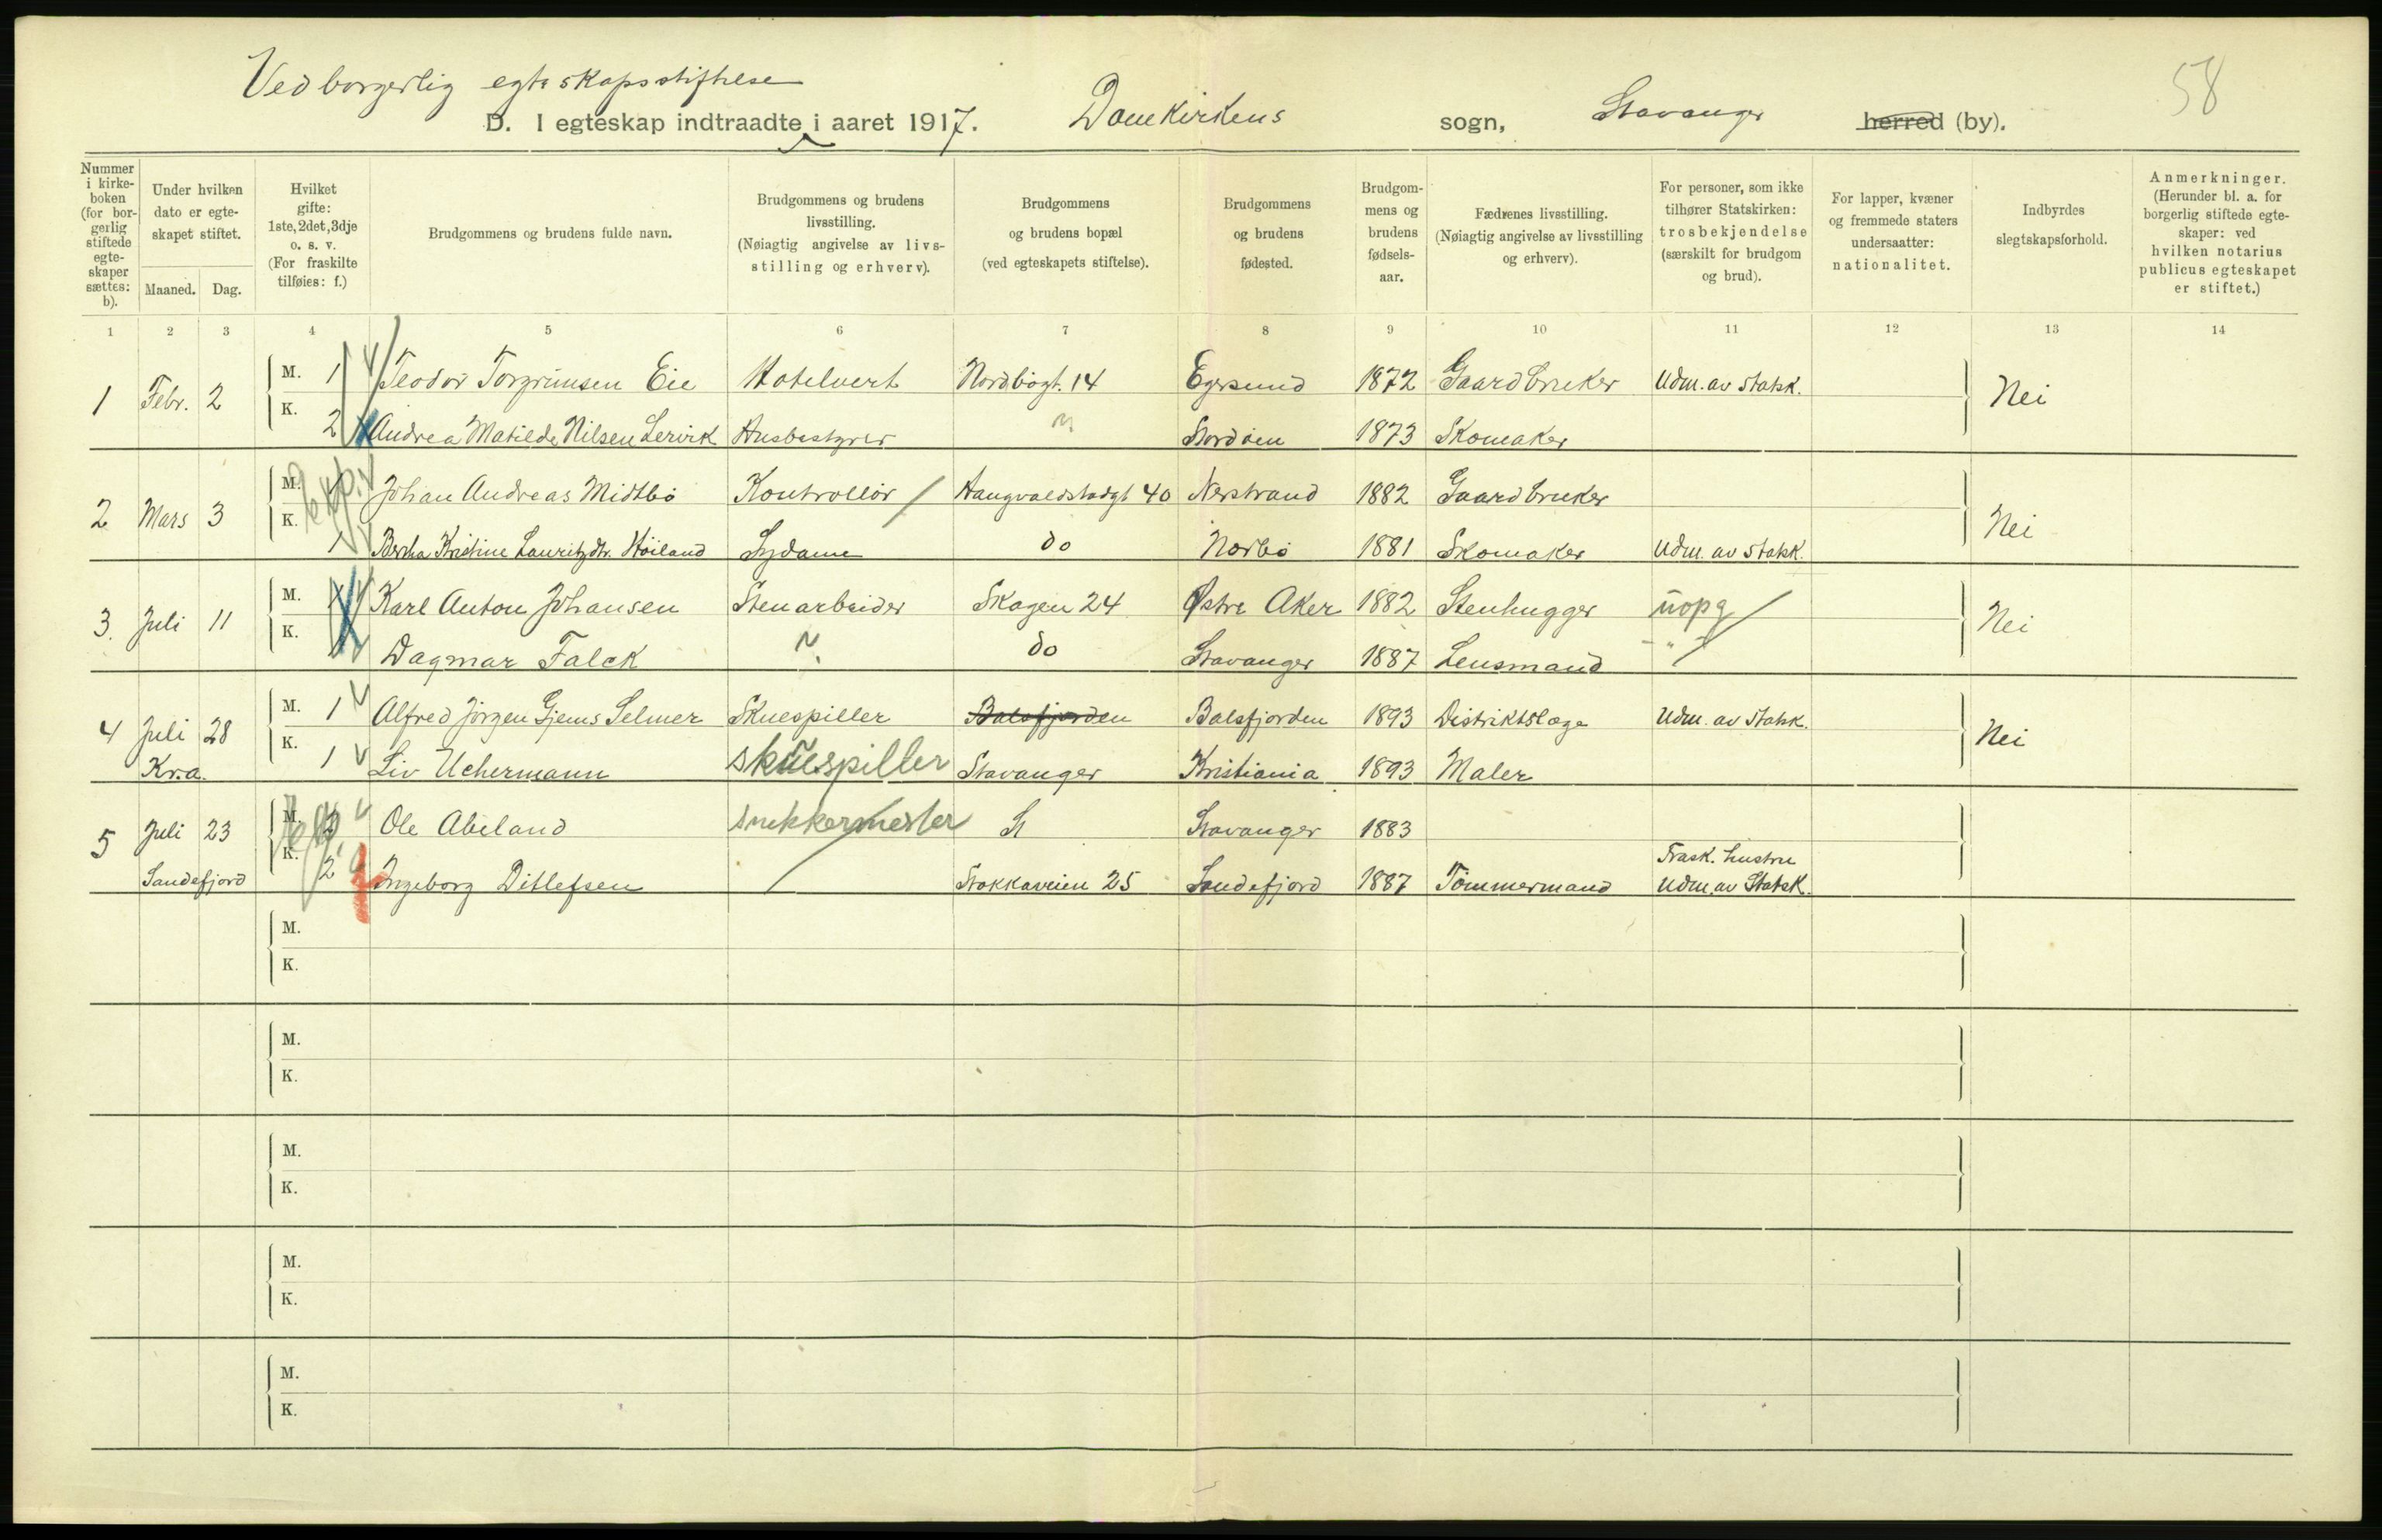 Ved borgerlig egteskapsstiftelse
58
D. I egteskap indtraadte i aaret 1917. Domkirkens sogn, Stavanger herred (by).
Nummer i kirkeboken (for borgerlig stiftede egteskaper sættes: b).
Under hvilken dato er egteskapet stiftet.
Maaned. Dag.
Hvilket gifte: 1ste, 2det, 3dje o. s. v. (For fraskilte tilføies: f.)
Brudgommens og brudens fulde navn.
Brudgommens og brudens livsstilling. (Nøiagtig angivelse av livsstilling og erhverv).
Brudgommens og brudens bopæl (ved egteskapets stiftelse).
Brudgommens og brudens fødested.
Brudgommens og brudens fødselsaar.
Fædrenes livsstilling. (Nøiagtig angivelse av livsstilling og erhverv).
For personer, som ikke tilhører Statskirken: trosbekjendelse (særskilt for brudgom og brud).
For lapper, kvæner og fremmede staters undersaatter: nationalitet.
Indbyrdes slegtskapsforhold.
Anmerkninger. (Herunder bl. a. for borgerlig stiftede egteskaper: ved hvilken notarius publicus egteskapet er stiftet.)
1 2 3 4 5 6 7 8 9 10 11 12 13 14
1 Febr. 2 M. 1 Teodor Torgrimsen Eie Hotelvert Nordbøgt. 14 Egersund 1872 Gaardbruker Udm. av statsk. Nei
K. 2 Andrea Matilde Nilsen Lervik Husbestyrer " Stordøen 1873 Skomaker
2 Mars 3 M. Johan Andreas Midtbø Kontrollør Haugvaldstadgt 40 Nerstrand 1882 Gaardbruker Nei
K. 1 Bertha Kristine Lauritzdtr. Høiland Sydame do Nærbø 1881 Skomaker Udm. av statsk.
3. Juli 11 M. Karl Anton Johansen Stenarbeider Skagen 24 Østre Aker 1882 Stenhugger uopg Nei
K. Dagmar Falck ? do Stavanger 1887 Lensmand - " -
4 Juli 28 M. 1 Alfred Jørgen Gjems Selmer Skuespiller Balsfjorden Balsfjorden 1893 Distriktslæge Udm. av statsk. Nei
Kr.a. K. 1 Liv Uchermann skuespiller Stavanger Kristiania 1893 Maler
5 Juli 23 M. 2 Ole Abeland snekkermester St Stavanger 1883
Sandefjord K. 2 Ingeborg Ditlefsen Stokkaveien 25 Sandefjord 1887 Tømmermand Frask. hustru
Udm. av Statsk.
M.
K.
M.
K.
M.
K.
M.
K.
M.
K.